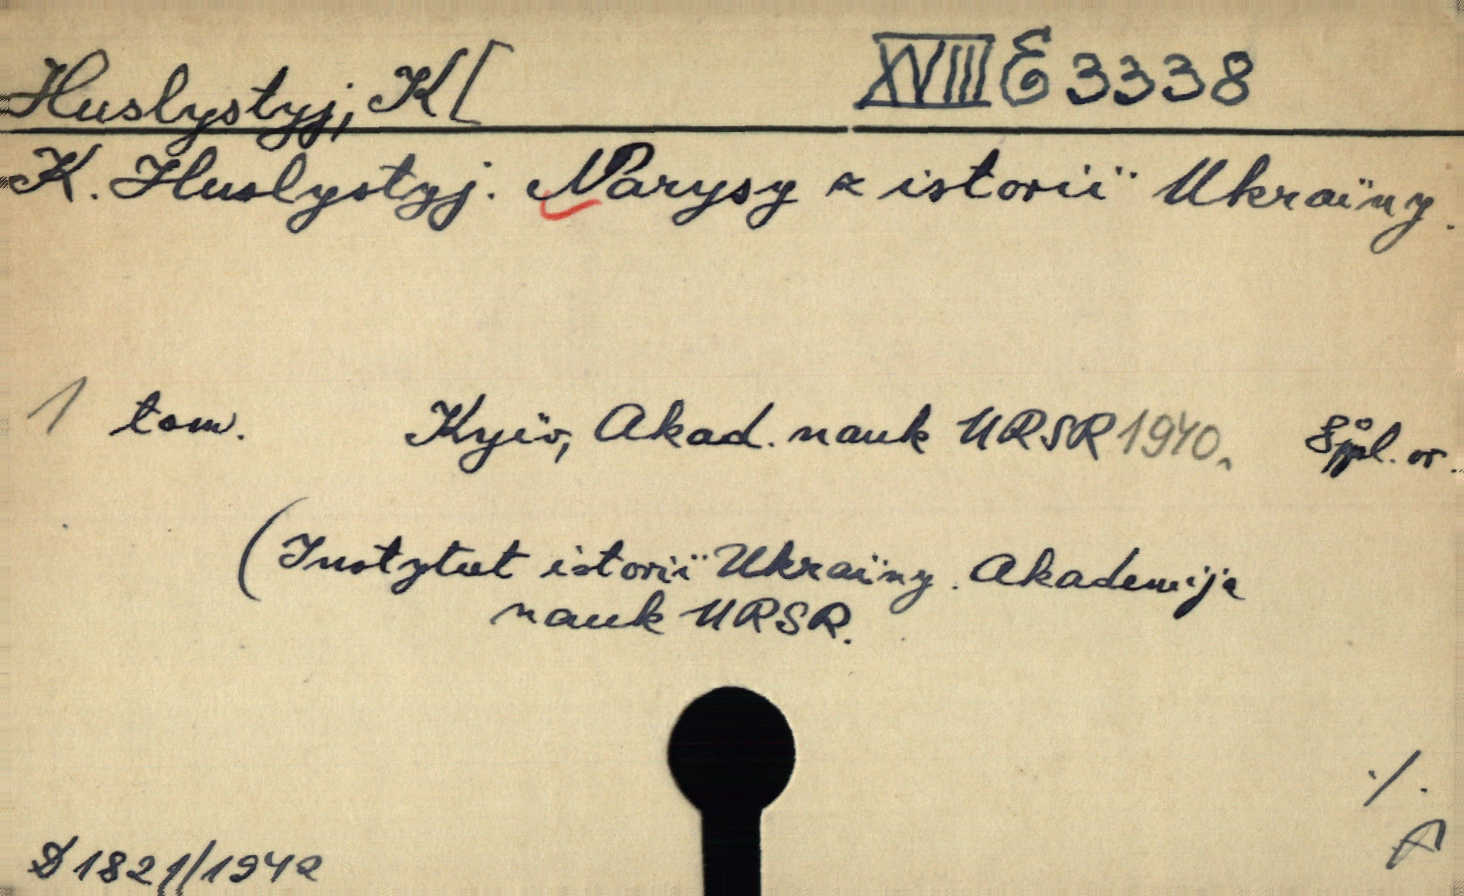 Huslystyj, K[ XVIII E 3338
K. Huslystyj. Narysy z istorii Ukraïny.
1 tom. Kyïv, Akad. nauk URSR 1940.
(Instytut istoriï Ukraïny. Akademija
nauk URSR.
./.
D 1821/1942